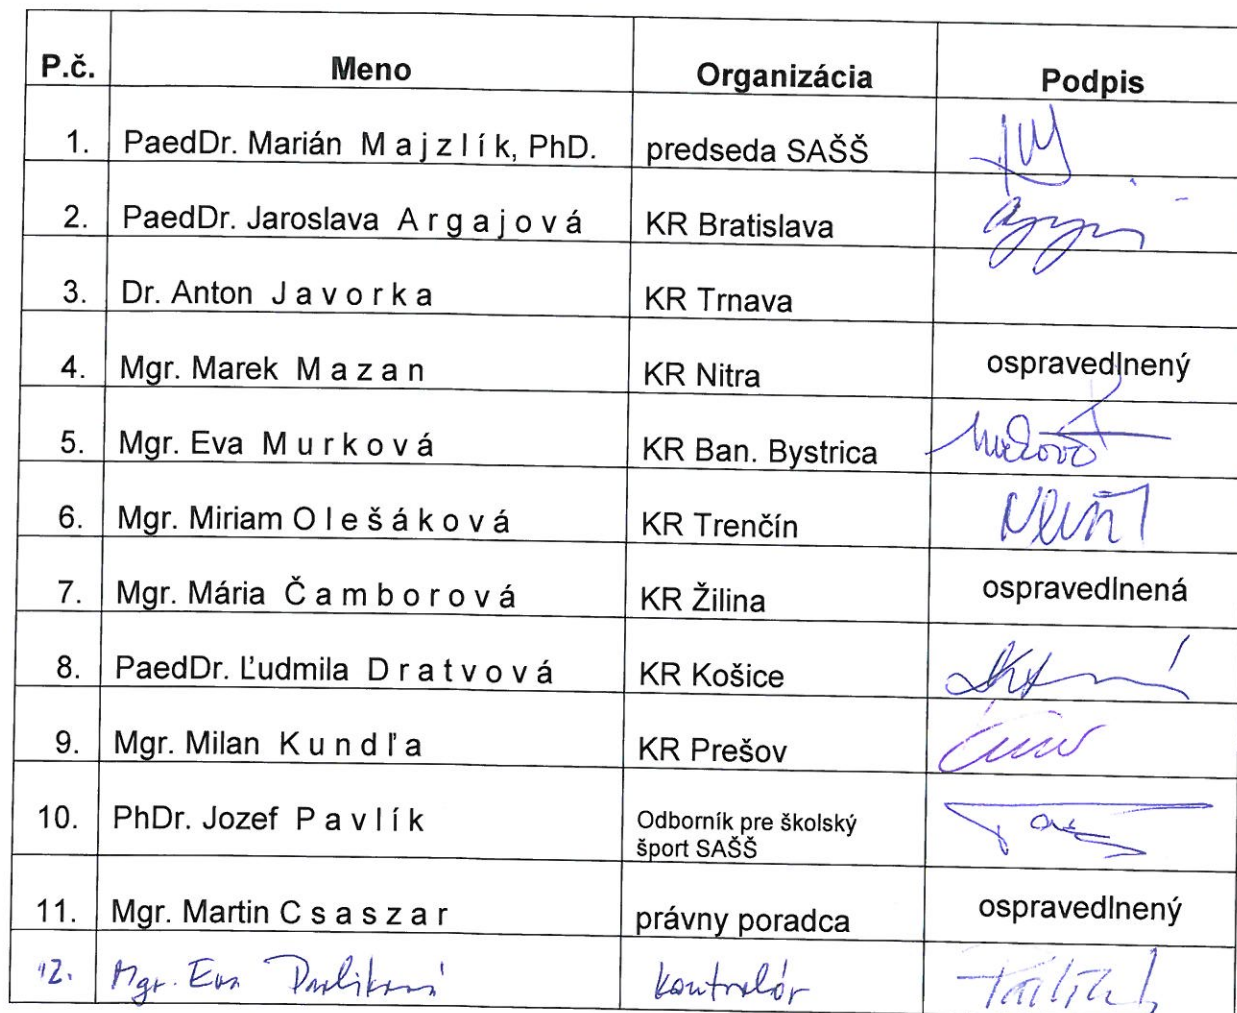 P.č. Meno Organizácia Podpis
1. PaedDr. Marián M a j z l í k, PhD. predseda SAŠŠ
2. PaedDr. Jaroslava A r g a j o v á KR Bratislava
3. Dr. Anton J a v o r k a KR Trnava
4. Mgr. Marek M a z a n KR Nitra ospravedlnený
5. Mgr. Eva M u r k o v á KR Ban. Bystrica
6. Mgr. Miriam O l e š á k o v á KR Trenčín
7. Mgr. Mária Č a m b o r o v á KR Žilina ospravedlnená
8. PaedDr. Ľudmila D r a t v o v á KR Košice
9. Mgr. Milan K u n d ľ a KR Prešov
10. PhDr. Jozef P a v l í k Odborník pre školský
šport SAŠŠ
11. Mgr. Martin C s a s z a r právny poradca ospravedlnený
12. Mgr. Eva kontrolór